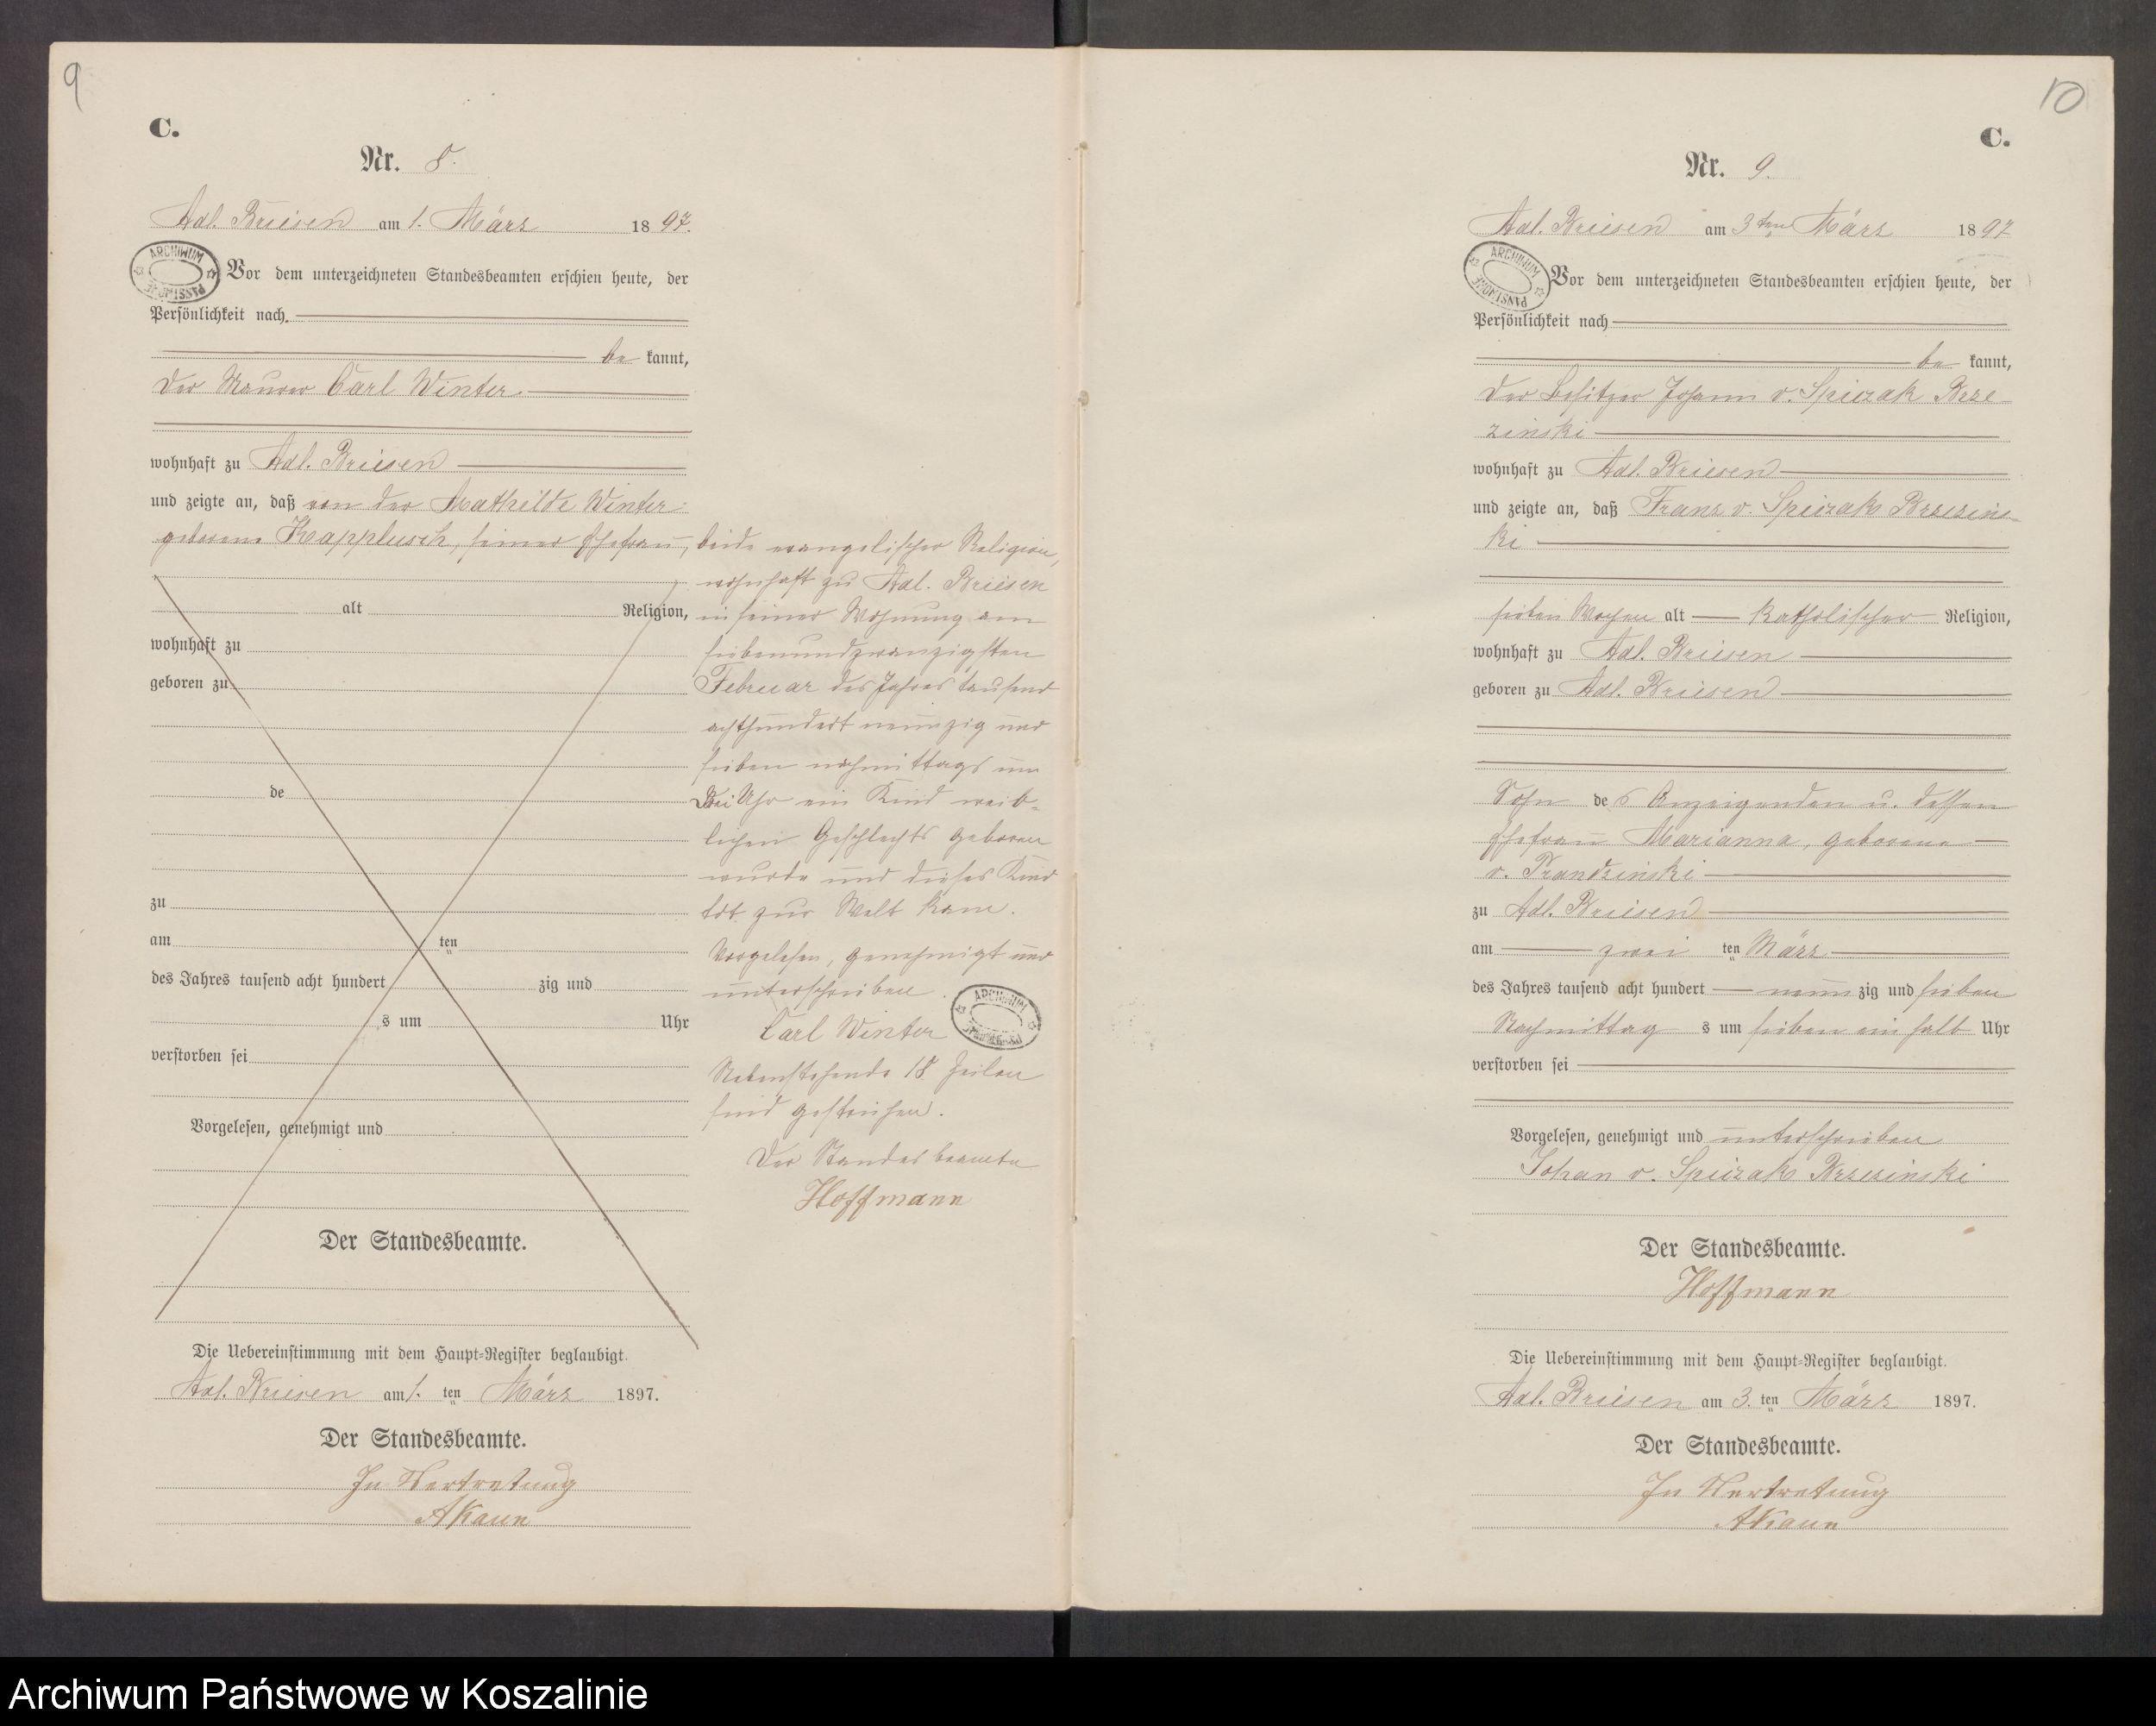 9
C.
Nr. 8.
Adl. Briesen am 1. März 1897.
ARCHIWUM PAŃSTWOWE
Vor dem unterzeichneten Standesbeamten erschien heute, der
Persönlichkeit nach
be kannt,
der Maurer Carl Winter
wohnhaft zu Adl. Briesen
und zeigte an, daß von der Mathilde Winter
geborene Kapplusch, seiner Ehefrau,
alt Religion,
wohnhaft zu
geboren zu
de
zu
am ten
des Jahres tausend acht hundert zig und
s um Uhr
verstorben sei
Vorgelesen, genehmigt und
Der Standesbeamte.
beide evangelischer Religion,
wohnhaft zu Adl. Briesen
in seiner Wohnung am
siebenundzwanzigsten
Februar des Jahres tausend
achthundert neunzig und
sieben nachmittags um
drei Uhr ein Kind weib-
lichen Geschlechts geboren
wurde und dieses Kind
tot zur Welt kam.
Vorgelesen, genehmigt und
unterschrieben
Carl Winter
ARCHIWUM PAŃSTWOWE
Nebenstehende 18 Zeilen
sind gestrichen.
Der Standesbeamte
Hoffmann
Die Uebereinstimmung mit dem Haupt-Register beglaubigt.
Adl. Briesen am 1. ten März 1897.
Der Standesbeamte.
In Vertretung
AKaun
10
C.
Nr. 9.
Adl. Briesen am 3ten März 1897
ARCHIWUM PAŃSTWOWE
Vor dem unterzeichneten Standesbeamten erschien heute, der
Persönlichkeit nach
be kannt,
der Besitzer Johann v. Spiczak Brze-
zinski
wohnhaft zu Adl. Briesen
und zeigte an, daß Franz v. Spiczak Brzezins-
ki
sieben Wochen alt katholischer Religion,
wohnhaft zu Adl. Briesen
geboren zu Adl. Briesen
Sohn des Anzeigenden u. dessen
Ehefrau Marianna, geborene
v. Prandzinski
zu Adl. Briesen
am zwei ten März
des Jahres tausend acht hundert neun zig und sieben
Nachmittag s um sieben ein halb Uhr
verstorben sei
Vorgelesen, genehmigt und unterschrieben
Johan v. Spiczak Brzezinski
Der Standesbeamte.
Hoffmann
Die Uebereinstimmung mit dem Haupt-Register beglaubigt.
Adl. Briesen am 3. ten März 1897.
Der Standesbeamte.
In Vertretung
AKaun
Archiwum Państwowe w Koszalinie